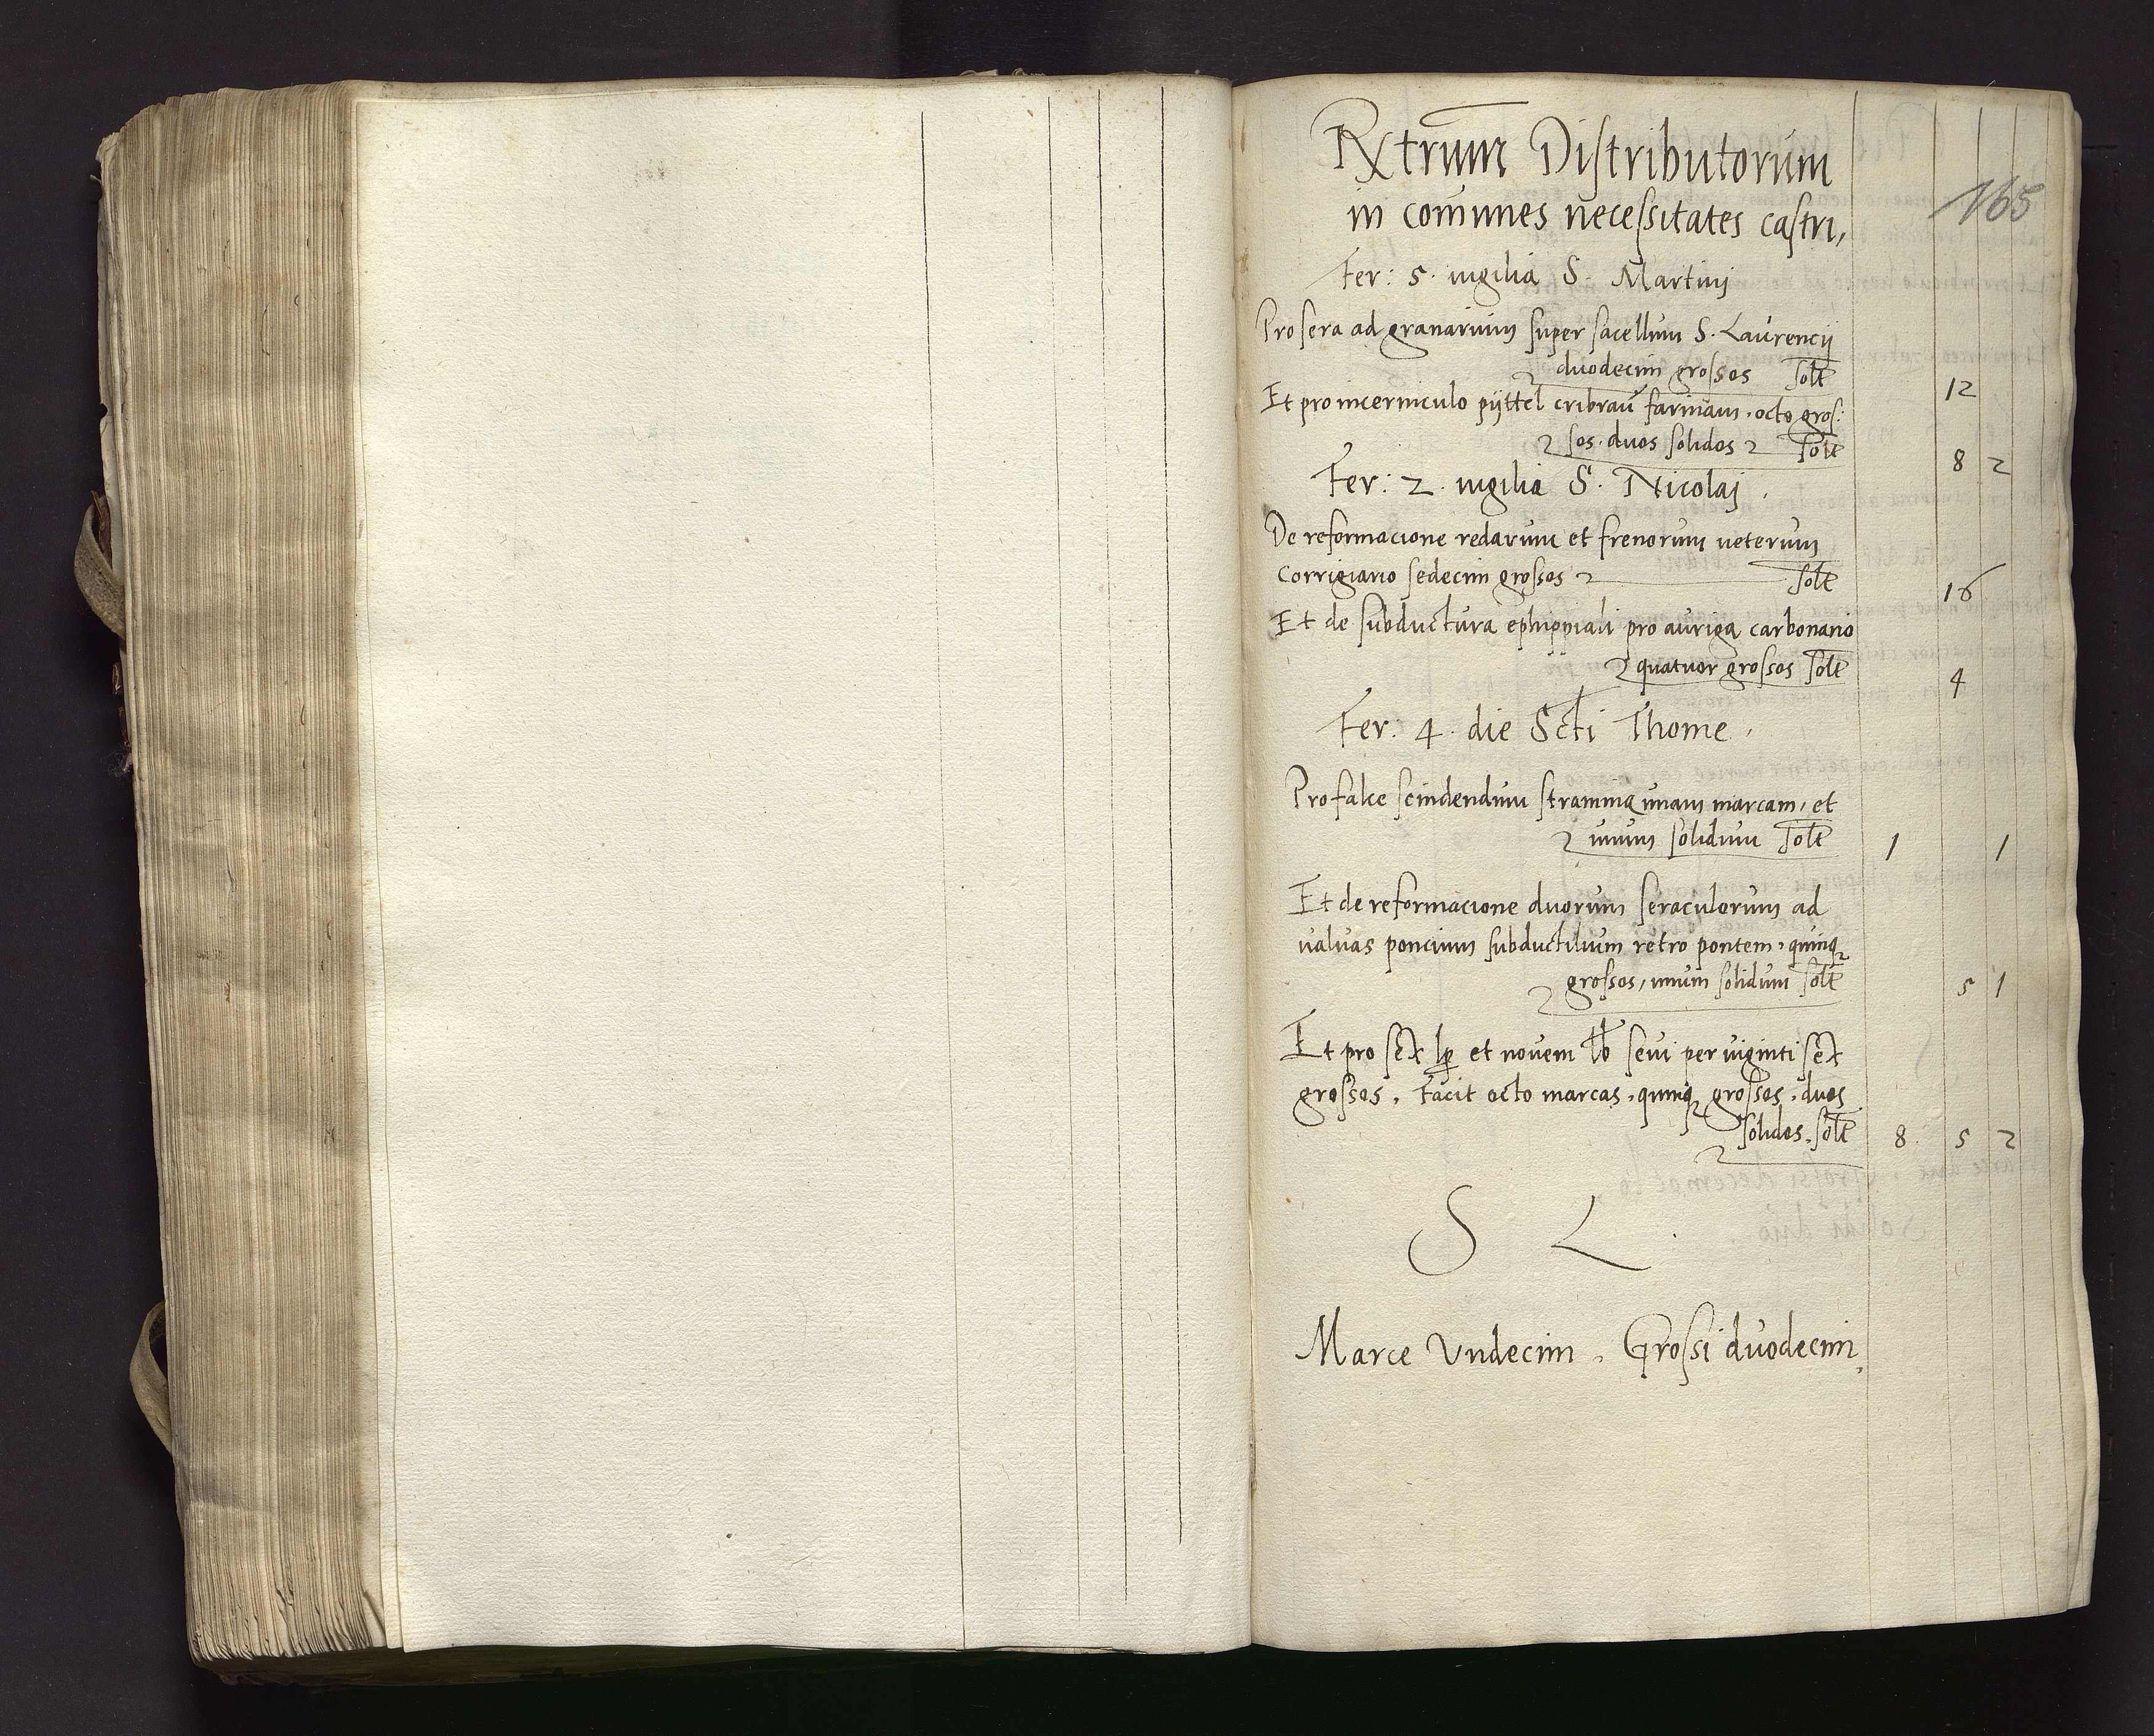 Rxtrum Distributorum
in comunes necessitates castri,
165
Fer: 5. vigilia S. Martinj
Pro sera ad granarium super sacellum S. Laurencij
duodecim grossos solt 12
Et pro incerniculo pyttel cribrau farinam, octo gros:
sos. duos solidos solt 8 2
Fer: 2. vigilia S. Nicolaj.
De reformacione redarum et frenorum veterum
Corrigiario sedecim grossos solt 16
Et de subductura ephippiali pro auriga carbonario
quatuor grossos solt 4
Fer: 4. die Scti Thome.
Pro falce scindendum stramina unam marcam, et
unum solidum solt 1 1
Et de reformacione duorum seraculorum ad
valvas poncium subductilium retro pontem, quinq
grossos, unum solidum solt 5 1
Et pro sex lp et novem lb sevi per viginti sex
grossos, Facit octo marcas, quinq grossos, duos
solidos, solt 8 5 2
S L
Marce Vndecim, Grossi duodecim,